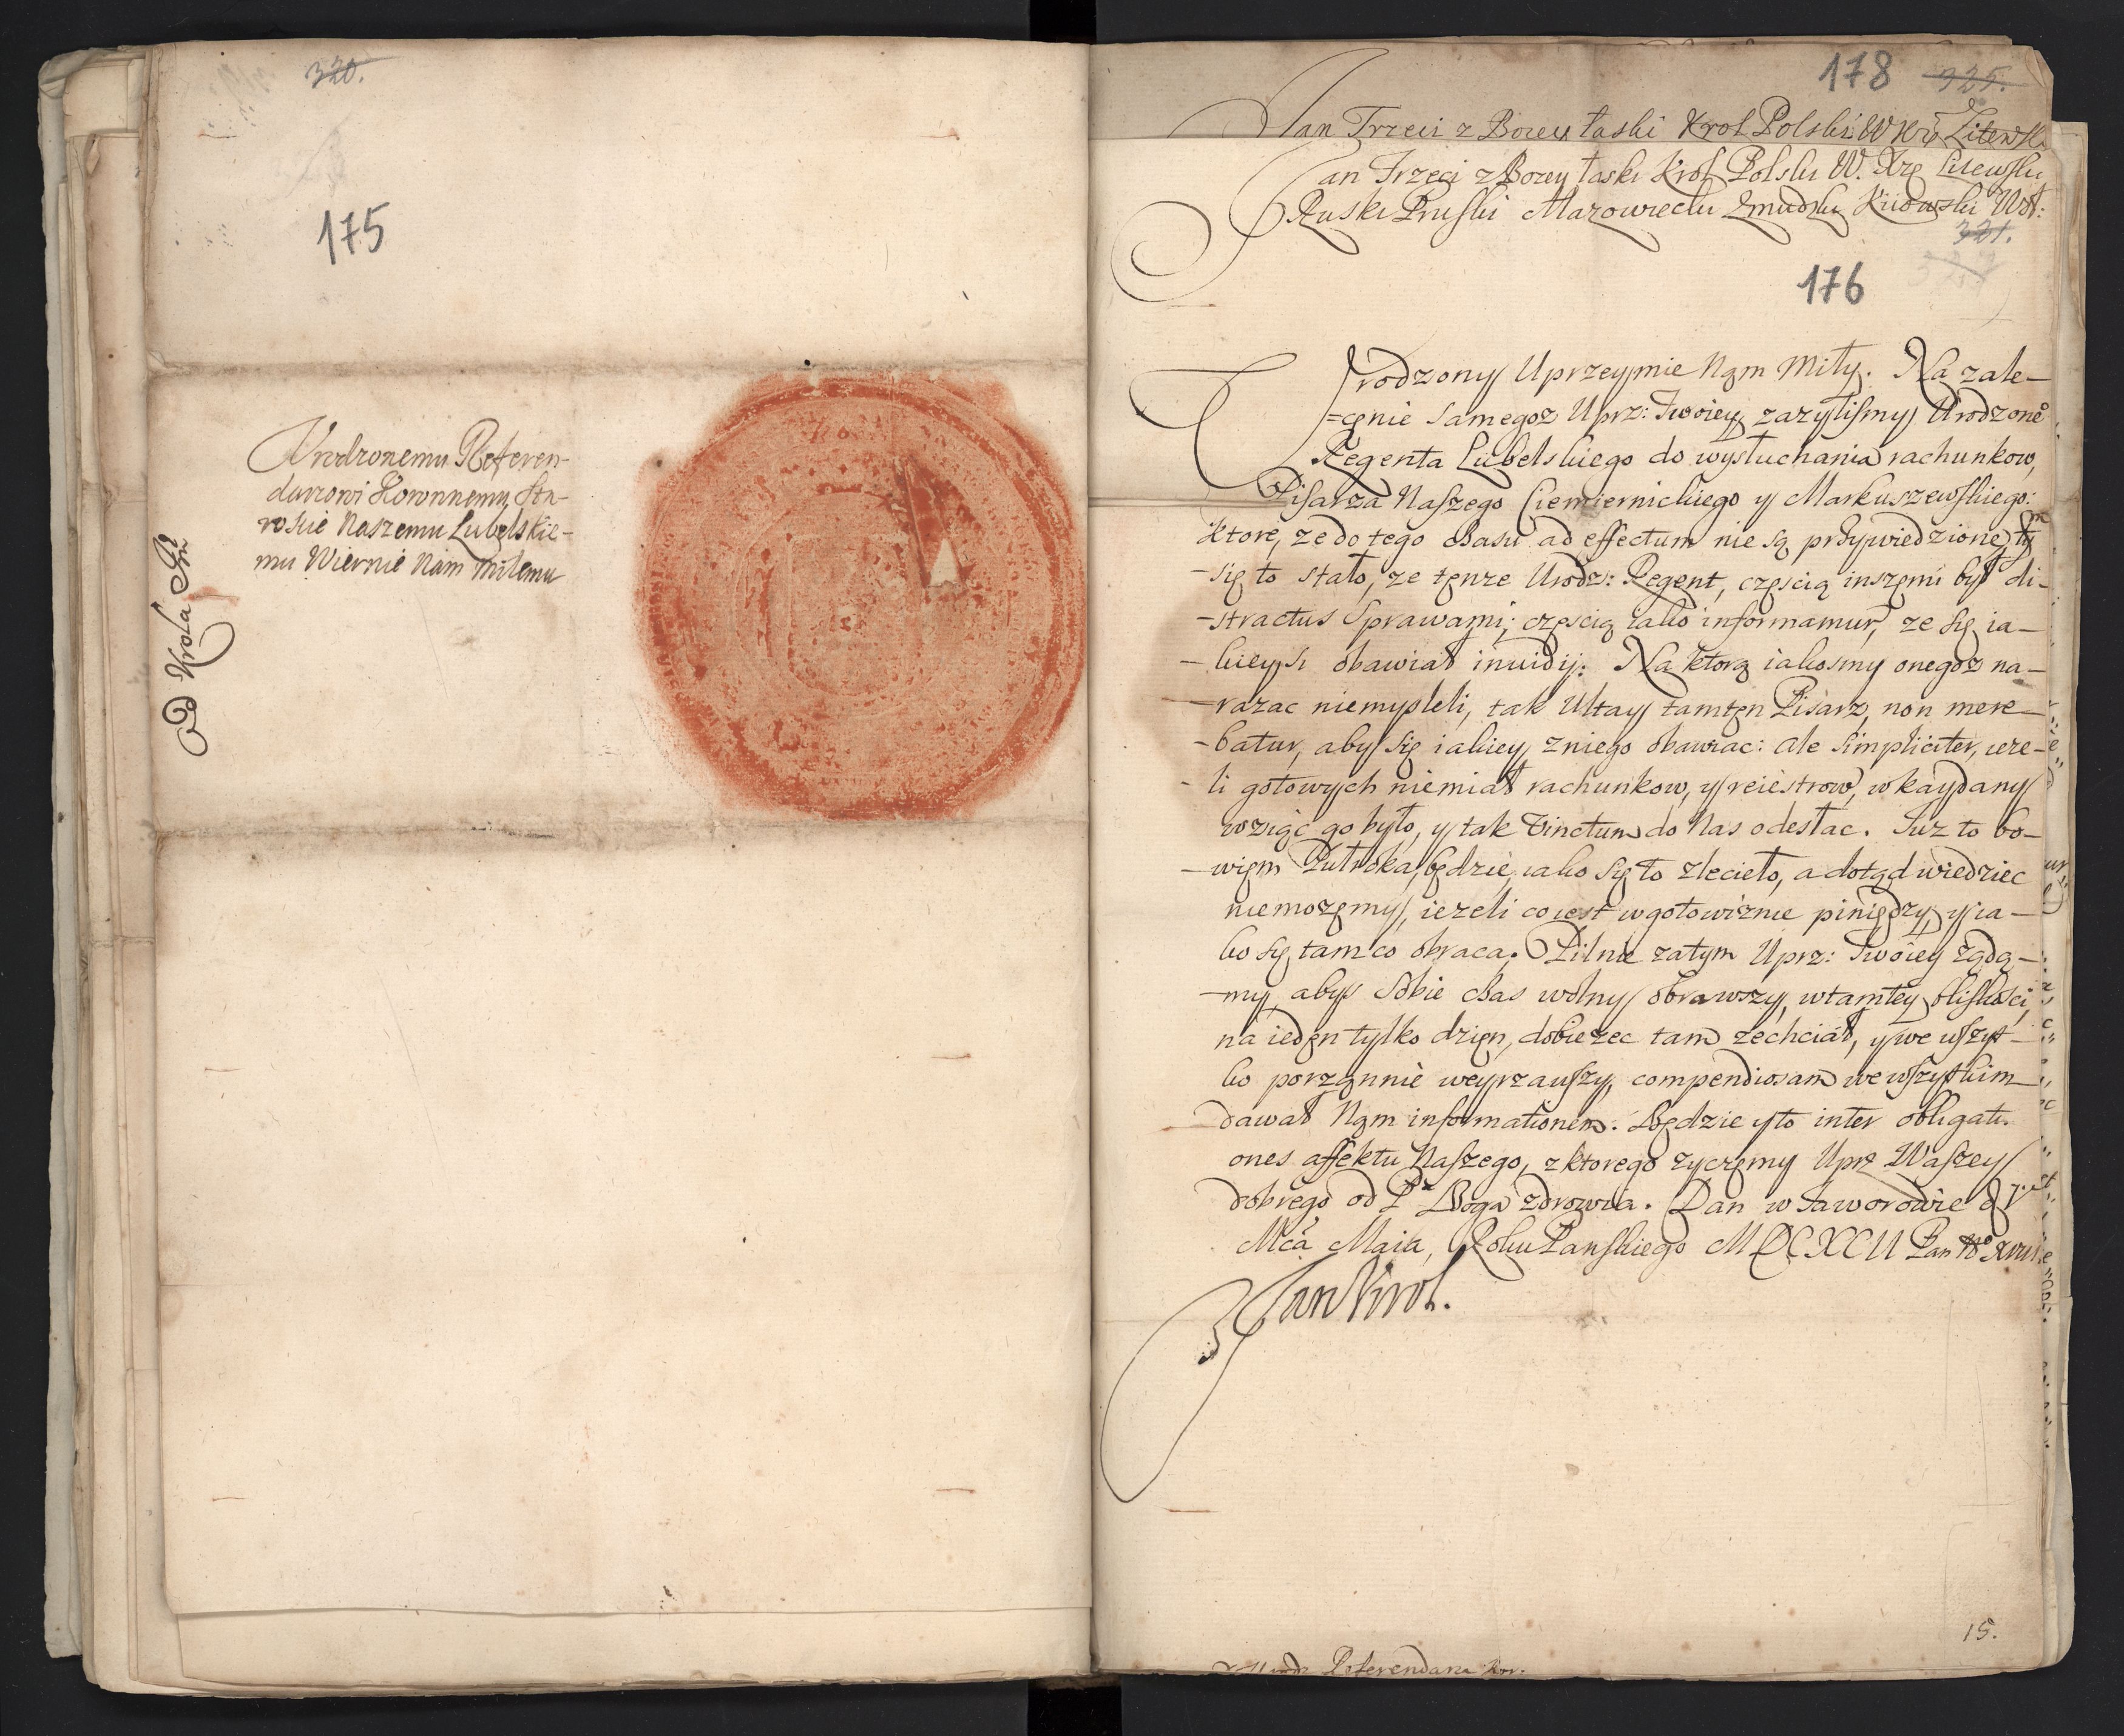 320.
175
Urodzonemu Referen-
darzowi Koronnemu, Sta-
roscie Naszemu Lubelskie-
mu Wiernie Nam Miłemu
Od Krola Jmci
178 325.
Jan Trzeci z Bozey łaski Krol Polski W Xże Litewski
Jan Trzeci z Bozey łaski Krol Polski W. Xże Litewski
Ruski Pruski Mazowiecki Zmudzki Kiiowski Woł:
321.
176
Urodzony Uprzeymie Nąm Miły. Na zale-
=cęnie samegoz Uprz: Twoiey zazylismy Urodzone°
Regenta Lubelskiego do wysłuchania rachunkow,
Pisarza Naszego Ciemiernickiego y Markuszewskiego:
ktore, ze do tego czasu ad effectum nie są przywiedzione, tym
-się to stało, ze tęnze Urodz: Regent, częscią inszęmi był di-
-stractus sprawami; częscią iako informamur, ze się ia-
-kieysi obawiał inuidij: Na ktorą iakosmy onegoz na-
-razac niemysleli, tak Ultay tamtęn Pisarz, non mere-
-batur, aby się iakiey z niego obawiac: ale simpliciter, ieze-
-li gotowych niemiał rachunkow, y reiestrow, w kaydany
wziąc go było, y tak vinctum do Nas odesłac. Juz to bo-
-więm Pułroka będzie, iako się to zlecieło, a dotąd wiedziec
niemozęmy, iezeli co iest w gotowiznie piniędzy, y ia-
ko się tam co obraca. Pilnie zatym Uprz: Twoiey ządą-
-my, abys sobie czas wolny obrawszy, w tamtey bliskosci,
na iedęn tylko dzięn, dobiezec tam zechciał, y we wszyt-
ko porząnnie weyrzawszy, compendiosam we wszytkim
dawał Nąm informationem. Będzie y to inter obligati-
ones affektu Naszego, z ktorego zyczęmy Uprz Waszey
dobrego od Pa Boga zdrowia. Dan w Jaworowie d 7.
Mca Maia, Roku Panskiego MDCXCII Pan No XVIII
Jan Krol.
15.
Referendarza Kor.